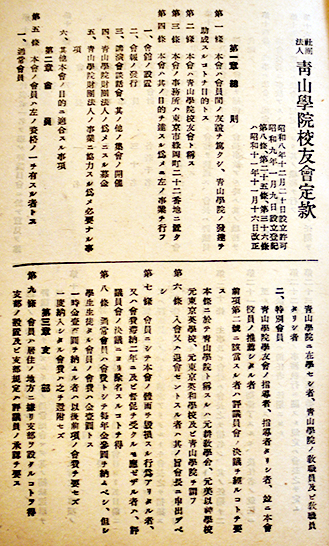 社団法人 青山學院校友會定款
昭和八年十二月二十日設立許可
昭和九年一月九日設立登記
第六條、第二十五條、第三十六條
ハ昭和十一年十一月十六日改正
第一章 總則
第一條 本會ハ會員間ノ友誼ヲ篤クシ、青山學院ノ發達ヲ
助成スルコトヲ目的トス
第二條 本會ハ青山學院校友會ト稱ス
第三條 本會ノ事務所ハ東京市綠岡町二十二番地ニ置ク
第四條 本會ハ其ノ目的ヲ達スル爲メ左ノ事業ヲ行フ
一、會館ノ設置
二、會報ノ發行
三、講演會談話會、其ノ他ノ集會ノ開催
四、青山學院財團法人ノ爲メニスル募金
五、青山學院財團法人ノ事業ニ協力スル爲メ必要ナル事
項
六、其他本會ノ目的ニ適合スル事項
第二章 會員
第五條 本會ノ會員ハ左ノ資格ノ一ヲ有スル者トス
一、通常會員
青山學院ニ在學セシ者、青山學院ノ教職員及ビ教職員
タリシ者
二、特別會員
青山學院學友會ノ指導者、指導者タリシ者、並ニ本會
役員ノ推薦シタル者
前項第二號ニ該當スル者ハ評議員會ノ決議ヲ經ルコトヲ要
ス
本條ニ於テ青山學院ト稱スルハ元耕教學舍、元美以神學校
元東京英學校、元東京英和學校及ビ青山學院ヲ謂フ
第六條 入會又ハ退會セントスル者ハ其ノ旨會長ニ申出ヅベ
シ
第七條 會員ニシテ本會ノ體面ヲ毀損スル行爲アリタル者、
又ハ會費滯納二年ニ及ビ督促ヲ受クルモ應ゼザル者ハ、評
議員會ノ決議ニヨリ除名スルコトヲ得
第八條 通常會員ハ會費トシテ毎年金壹圓ヲ納ムベシ、但シ
學生生徒タル會員ノ會費ハ金壹圓トス
一時金壹圓ヲ納ムル者ハ以後前項ノ會費ヲ要セズ
一度納入シタル會費ハ之ヲ還附セズ
第三章 支部
第九條 會員ハ居住ノ地方ニ據リ支部ヲ設クルコトヲ得
支部ノ設置及ビ支部規定ハ評議員ノ承認ヲ要ス